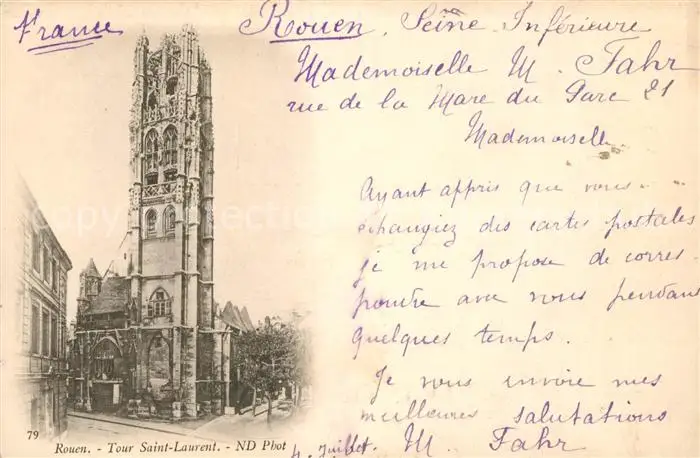 France
Rouen, Seine Inférieure
Mademoiselle M. Fahr
rue de la Mare du Parc 21
Mademoiselle
Ayant appris que vous
échangiez des cartes postales
je me propose de corres-
pondre avec vous pendant
quelques temps.
Je vous envoie mes
meilleures salutations
4 Juillet. M. Fahr
79
Rouen. - Tour Saint-Laurent. - ND Phot